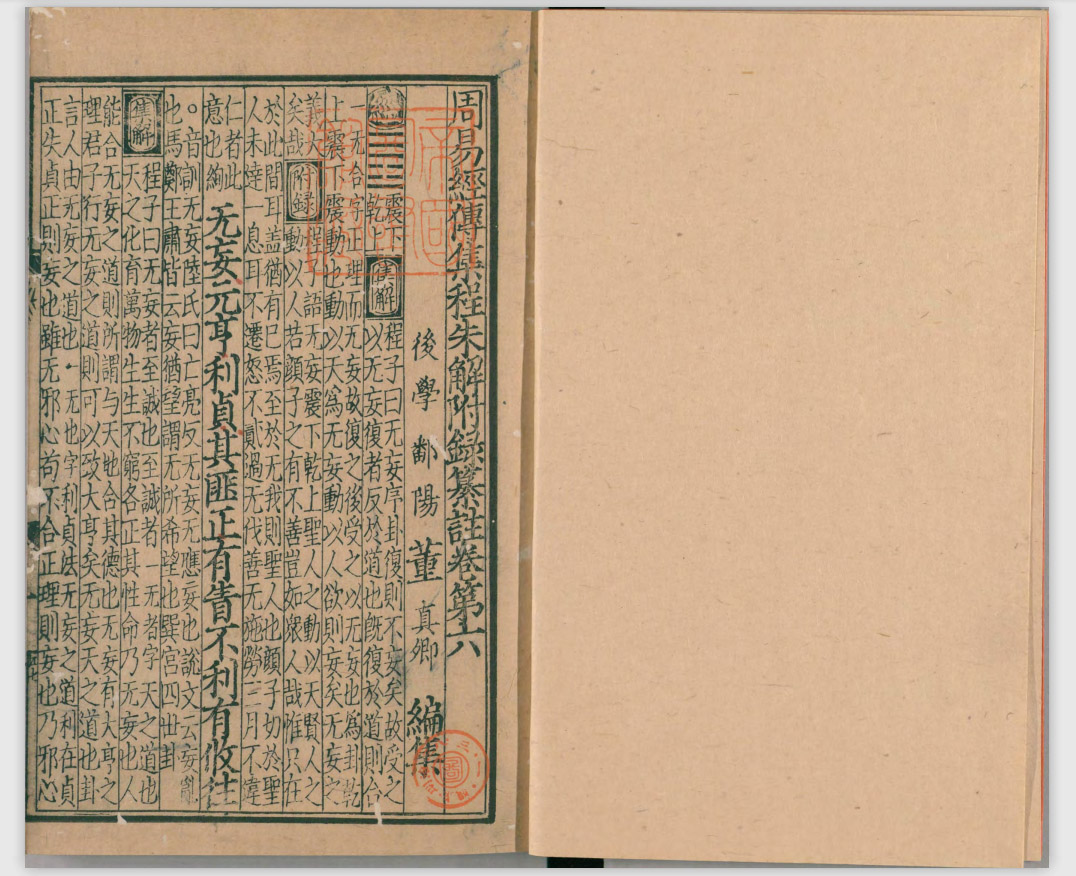 周易經傳集程朱解附録纂註卷第六
後學鄱陽董真卿編集
經
䷘
震下
乾上
集解
程子曰无妄序卦復則不妄矣故受之
以无妄復者反於道也旣復於道則合
一无合字正理而无妄故復之後受之以无妄也爲卦乾
上震下震動也動以天爲无妄動以人欲則妄矣无妄之
義大
矣哉
附録
程子語无妄震下乾上聖人之動以天賢人之
動以人若顔子之有不善豈如衆人哉惟只在
於此間耳盖猶有已焉至於无我則聖人也顔子切於聖
人未達一息耳不遷怒不貳過无伐善无施勞三月不違
仁者此
意也絢
无妄元亨利貞其匪正有眚不利有攸往
○音訓无妄陸氏曰亡亮反无妄无應妄也說文云妄亂
也馬鄭王肅皆云妄猶望謂无所希望也巽宫四丗卦
集解
程子曰无妄者至誠也至誠者一无者字天之道也
天之化育萬物生生不窮各正其性命乃无妄也人
能合无妄之道則所謂与天地合其德也无妄有大亨之
理君子行无妄之道則可以致大亨矣无妄天之道也卦
言人由无妄之道也一无也字利貞法无妄之道利在貞
正失貞正則妄也雖无邪心苟不合正理則妄也乃邪心